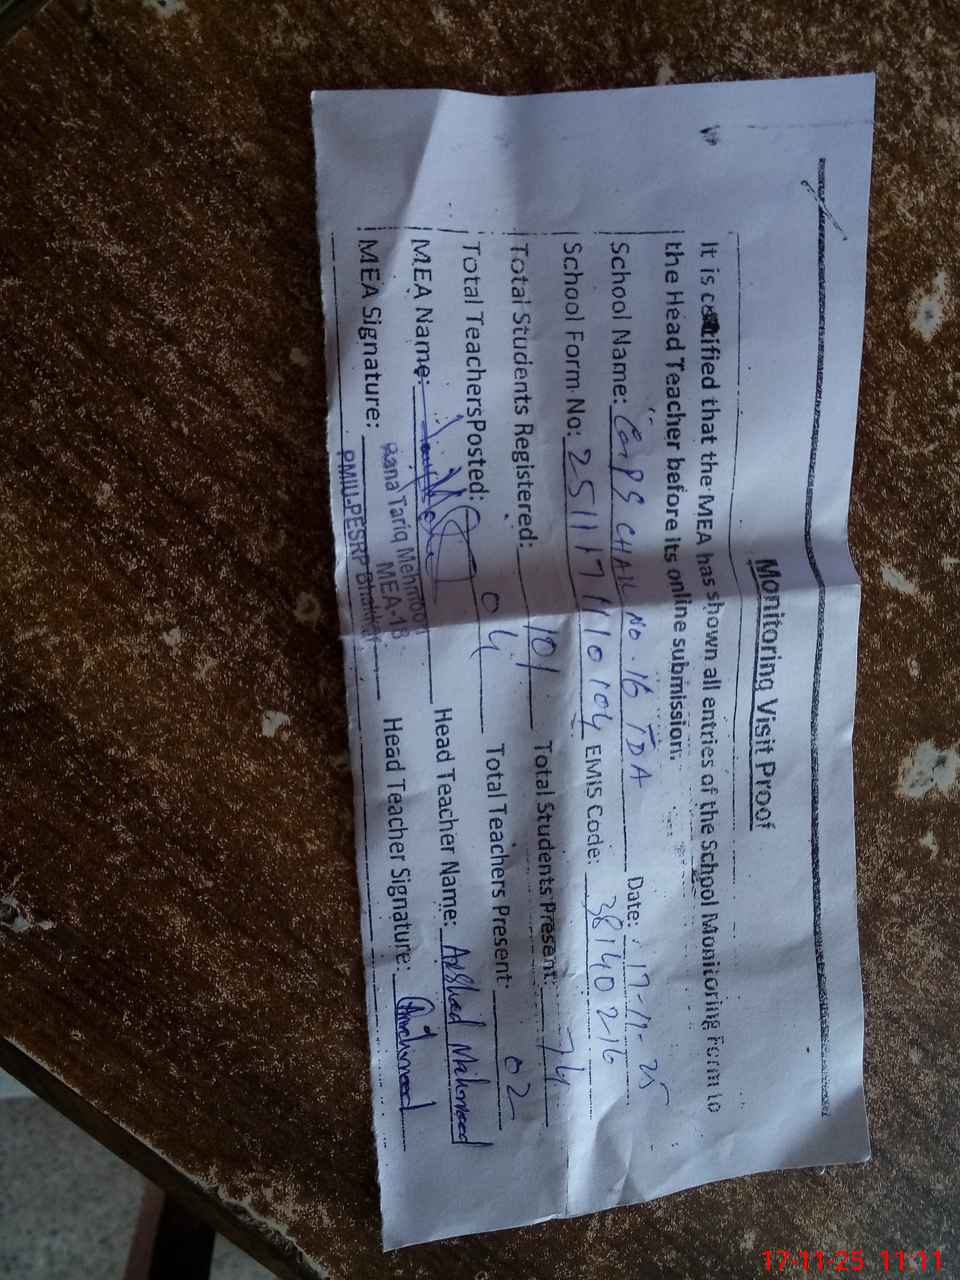 Monitoring Visit Proof
It is certified that the MEA has shown all entries of the School Monitoring Form to
the Head Teacher before its online submission.
School Name: GMPS CHAK NO. 16 TDA Date: 17-11-25
School Form No: 2511171110104 EMIS Code: 38140216
Total Students Registered: 101 Total Students Present: 74
Total TeachersPosted: 04 Total Teachers Present: 02
MEA Name: Head Teacher Name: Arshad Mahmood
MEA Signature: Head Teacher Signature:
Rana Tariq Mehmood
MEA-18
PMIU-PESRP Bhakkar
17-11-25 11:11